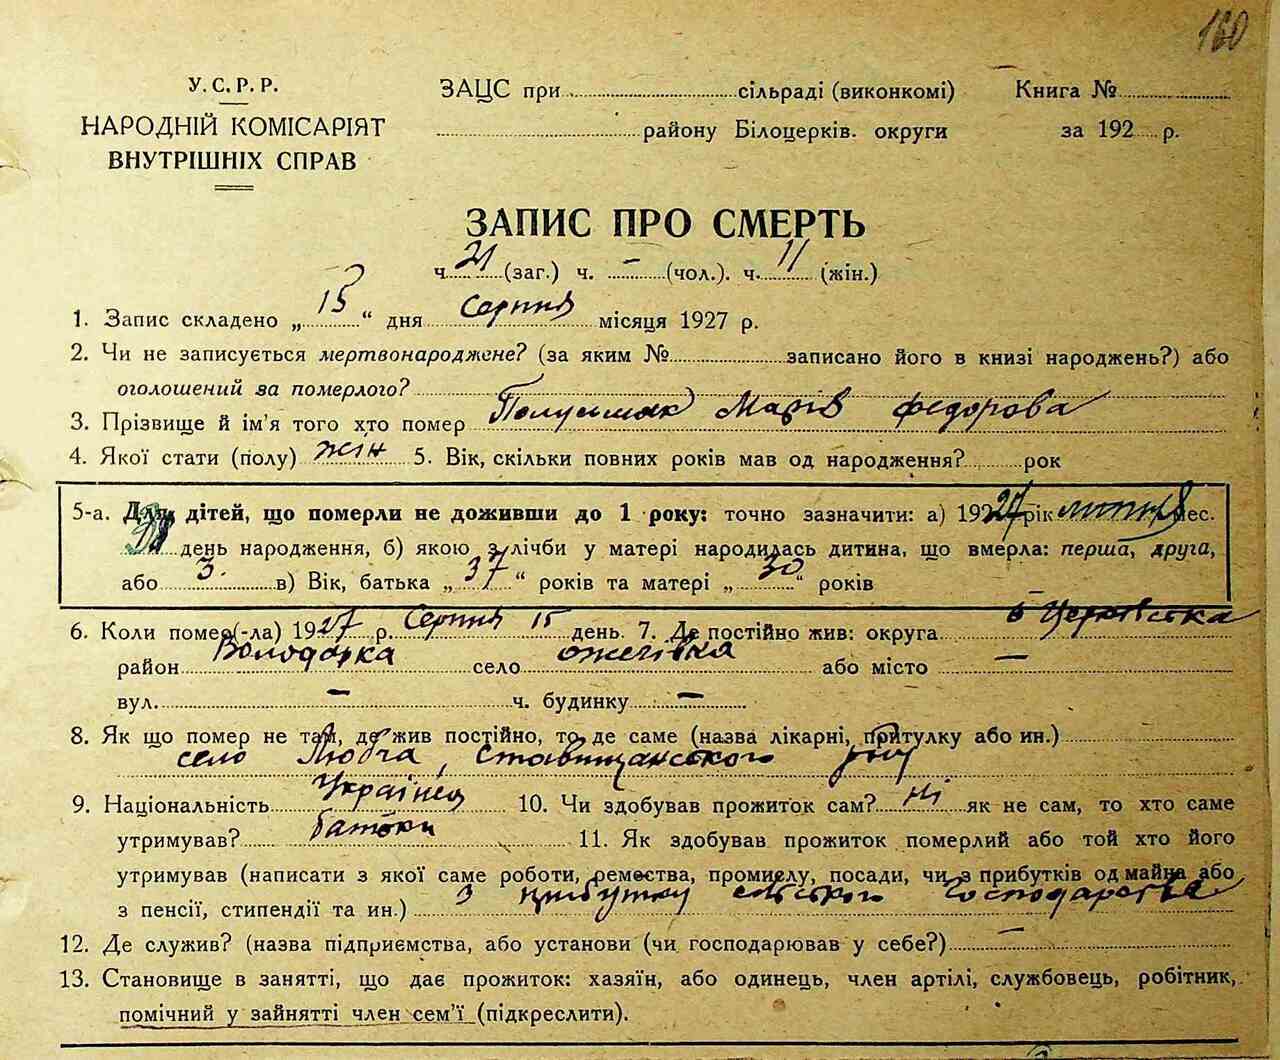 160
У. С. Р. Р.
НАРОДНІЙ КОМІСАРІЯТ
ВНУТРІШНІХ СПРАВ
ЗАЦС при сільраді (виконкомі) Книга №
району Білоцерків. округи за 192 р.
ЗАПИС ПРО СМЕРТЬ
ч. 21 (заг.) ч. - (чол.). ч. 11 (жін.)
1. Запис складено „ 15 “ дня Серпня місяця 1927 р.
2. Чи не записується мертвонароджене? (за яким № записано його в книзі народжень?) або
оголошений за померлого?
3. Прізвище й ім'я того хто помер Марія Федорова
4. Якої стати (полу) жін 5. Вік, скільки повних років мав од народження? рок
5-а. Для дітей, що померли не доживши до 1 року: точно зазначити: а) 1927 рік мес.
день народження, б) якою з лічби у матері народилась дитина, що вмерла: перша, друга,
або 3. в) Вік, батька „ 37 “ років та матері „ 30 “ років
6. Коли помер(-ла) 1927 р. Серпня 15 день. 7. Де постійно жив: округа Б Церковська
район Володарка село ожегівка або місто —
вул. — ч. будинку —
8. Як що помер не там, де жив постійно, то де саме (назва лікарні, притулку або ин.)
село Любча, Ставищанського р-ну
9. Національність Українка 10. Чи здобував прожиток сам? Ні як не сам, то хто саме
утримував? батьки 11. Як здобував прожиток померлий або той хто його
утримував (написати з якої саме роботи, ремества, промислу, посади, чи з прибутків од майна або
з пенсії, стипендії та ин.) з прибутку сільського Господарства
12. Де служив? (назва підприємства, або установи (чи господарював у себе?) —
13. Становище в занятті, що дає прожиток: хазяїн, або одинець, член артілі, службовець, робітник,
помічний у зайнятті член сем'ї (підкреслити).